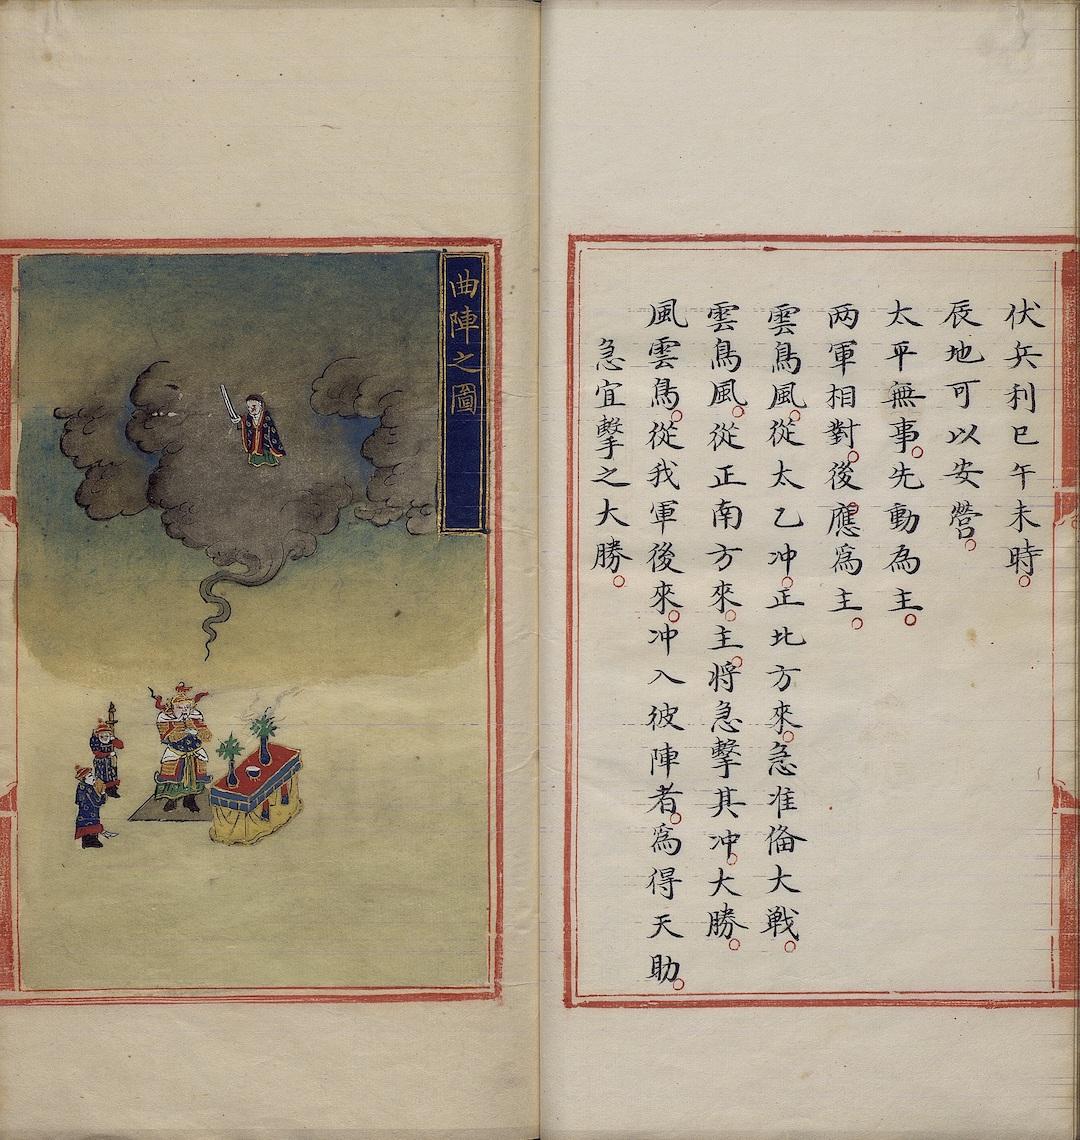 伏兵利巳午未時。
辰地可以安營。
太平無事。先動為主。
两軍相對。後應爲主。
雲鳥風。從太乙冲。正北方來。急准俻大戰。
雲鳥風。從正南方來。主將急擊其冲。大勝。
風雲鳥。從我軍後來。冲入彼陣者。爲得天助。
急宜擊之大勝。
曲陣之圖